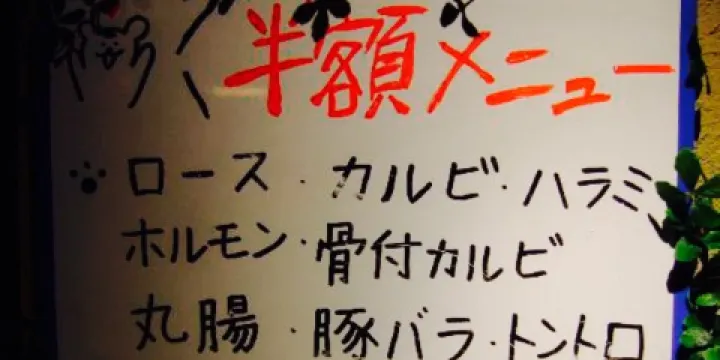 半額メニュー
ロース・カルビ・ハラミ、
ホルモン・骨付カルビ
丸腸・豚バラ・トントロ